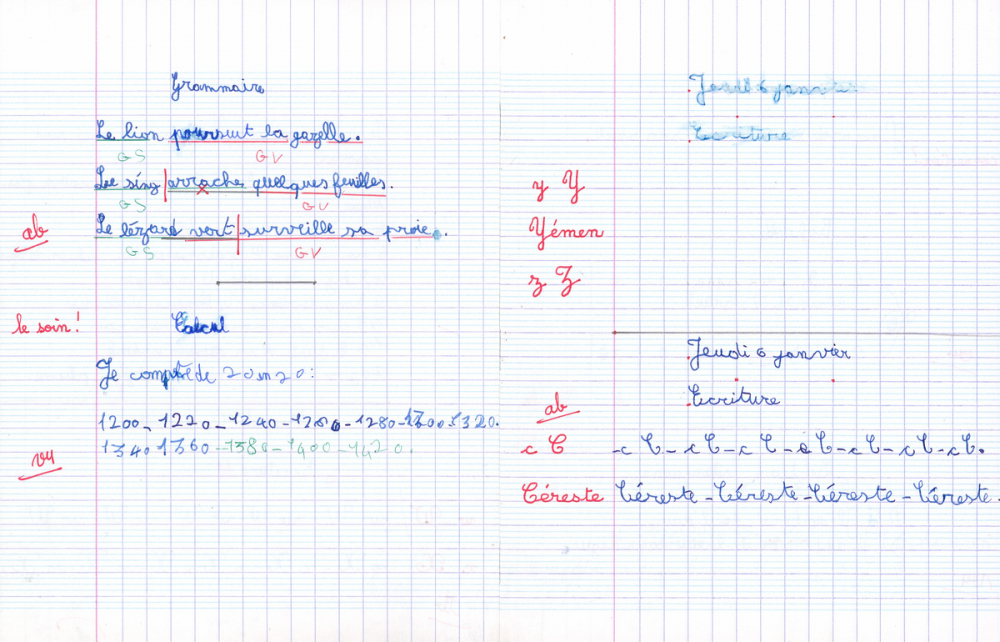 Grammaire
Le lion poursuit la gazelle.
GS GV
Le sing arrache quelques feuilles.
GS GV
ab Le lézard vert surveille sa proie.
GS GV
le soin! Calcul
Je compte de 20 en 20:
1200-1220-1240-1260-1280-1300-1320.
1340 1360-1380-1400-1420.
vu
Jeudi 6 janvier
Ecriture
y Y
Yémen
z Z
Jeudi 6 janvier
ab Ecriture
c C -c C-c C-c C-c C-c C-c C-c C.
Céreste Céreste-Céreste-Céreste-Céreste.